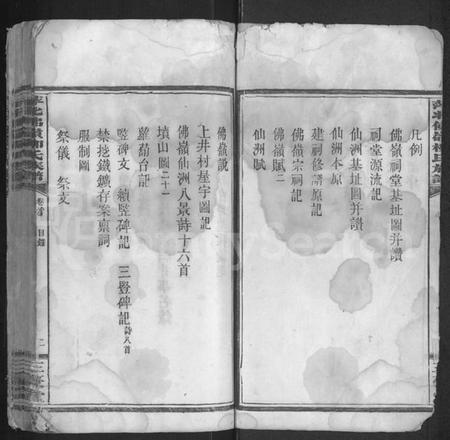 凡例
佛嶺祠堂基址圖并讚
祠堂源流記
仙洲基址圖并讚
仙洲本原
建祠修譜原記
佛嶺宗祠記
佛嶺賦二
仙洲賦
佛嶺說
上井村屋宇圖記
佛嶺仙洲八景詩十六首
墳山圖二十一
蘿蔔台記
豎碑文 續豎碑記 三豎碑記 詩八首
禁挖鐵鑛存案禀詞
服制圖
祭儀 祭文
卷首 目錄